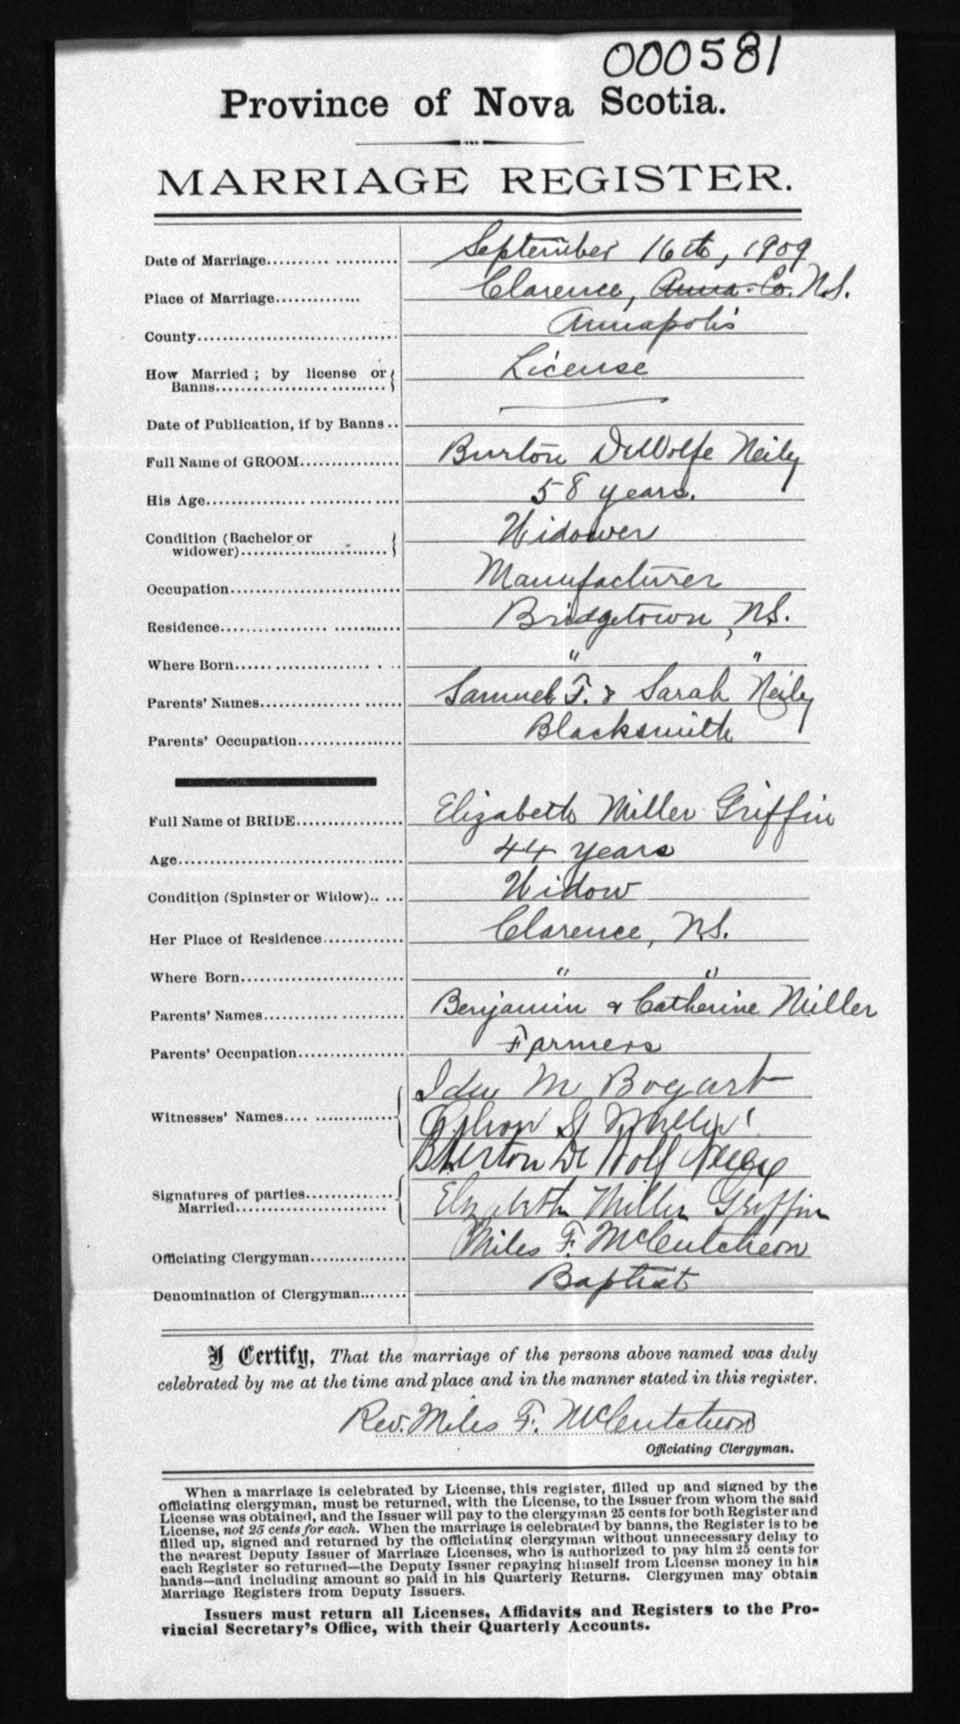 000581
Province of Nova Scotia.
MARRIAGE REGISTER.
Date of Marriage.................... September 16th, 1909
Place of Marriage............. Clarence, Anna. Co. N.S.
County............................... Annapolis
How Married; by license or
Banns........................... License
Date of Publication, if by Banns..
Full Name of GROOM................ Burton DeWolfe Neily
His Age.............................. 58 years.
Condition (Bachelor or
widower)........................ Widower
Occupation........................... Manufacturer
Residence........................... Bridgetown, N.S.
Where Born...................... " "
Parents' Names..................... Samuel F. & Sarah Neily
Parents' Occupation................. Blacksmith
Full Name of BRIDE................ Elizabeth Miller Griffin
Age.................................... 44 years
Condition (Spinster or Widow)..... Widow
Her Place of Residence............. Clarence, N.S.
Where Born......................... " "
Parents' Names..................... Benjamin & Catherine Miller
Parents' Occupation................. Farmers
Ida M Bogart
Witnesses' Names..................
Miller
Burton De Wolf
Signatures of parties...............
Married........................ Elizabeth Miller Griffin
Officiating Clergyman.............. Miles F. McCutcheon
Denomination of Clergyman........ Baptist
I Certify, That the marriage of the persons above named was duly
celebrated by me at the time and place and in the manner stated in this register.
Rev. Miles F. McCutcheon
Officiating Clergyman.
When a marriage is celebrated by License, this register, filled up and signed by the
officiating clergyman, must be returned, with the License, to the Issuer from whom the said
License was obtained, and the Issuer will pay to the clergyman 25 cents for both Register and
License, not 25 cents for each. When the marriage is celebrated by banns, the Register is to be
filled up, signed and returned by the officiating clergyman without unnecessary delay to
the nearest Deputy Issuer of Marriage Licenses, who is authorized to pay him 25 cents for
each Register so returned—the Deputy Issuer repaying himself from License money in his
hands—and including amount so paid in his Quarterly Returns. Clergymen may obtain
Marriage Registers from Deputy Issuers.
Issuers must return all Licenses, Affidavits and Registers to the Pro-
vincial Secretary's Office, with their Quarterly Accounts.